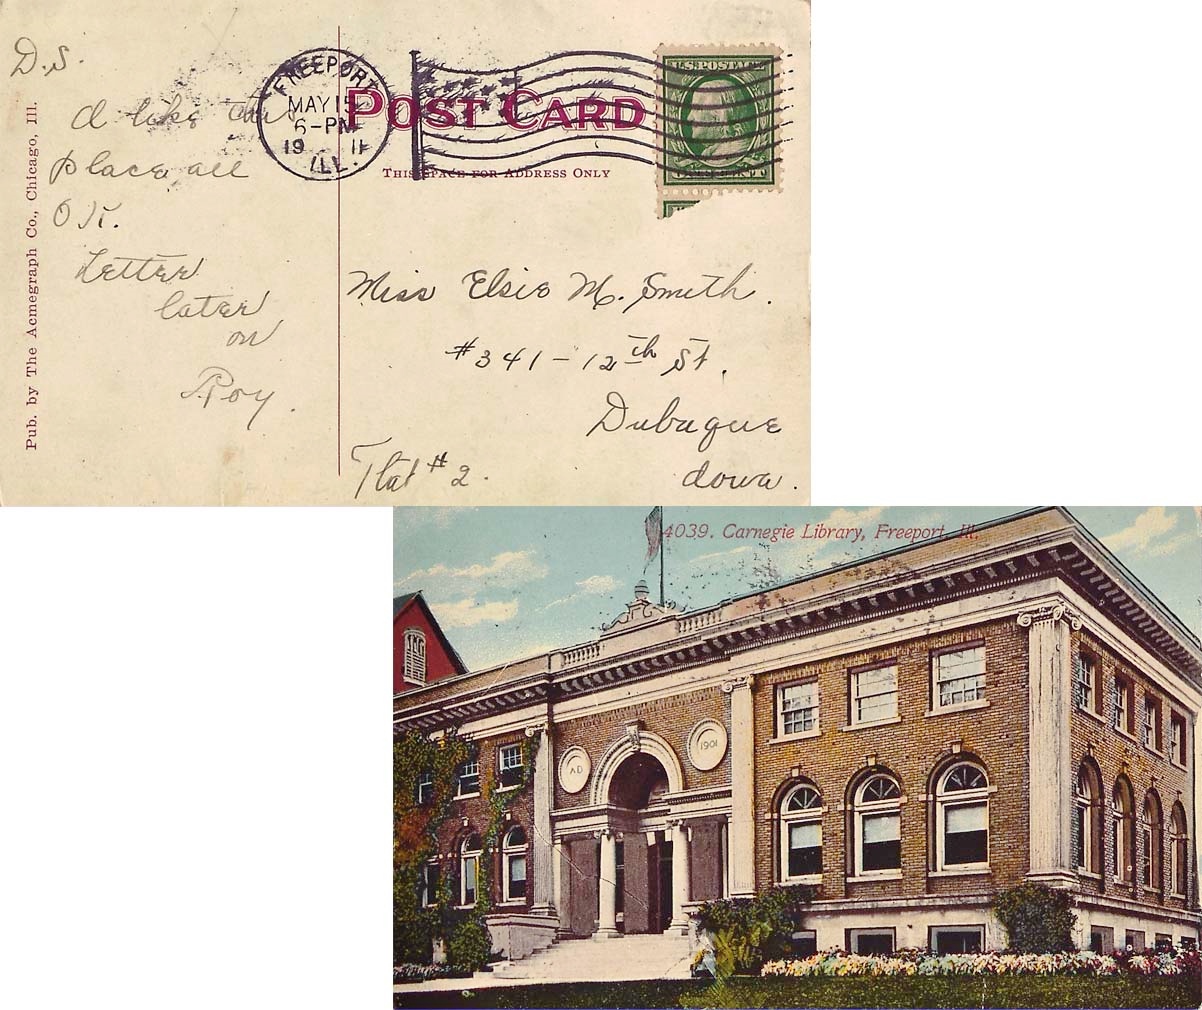 D.S.
I like this
place all
O.K.
Letter
later
on
Roy.
Pub. by The Acmegraph Co., Chicago, Ill.
FREEPORT
MAY 15
6-PM
19 11
ILL.
POST CARD
THIS SPACE FOR ADDRESS ONLY
U.S. POSTAGE
Miss Elsie M. Smith.
#341-12th St.
Dubuque
Iowa.
Flat #2.
4039. Carnegie Library, Freeport, Ill.
AD
1901